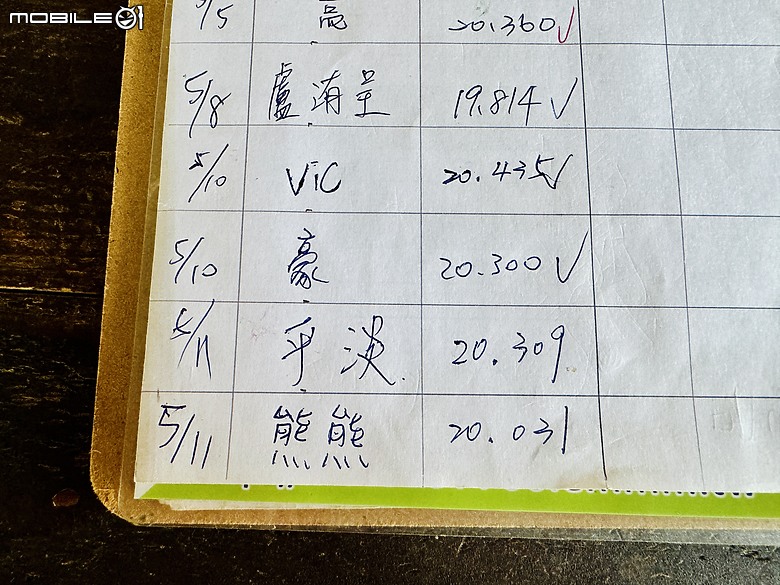 MOBILE01
5/5 亮 20.360✓
5/8 盧洧呈 19.814✓
5/10 ViC 20.435✓
5/10 豪 20.300✓
5/11 平淡 20.309
5/11 熊熊 20.031